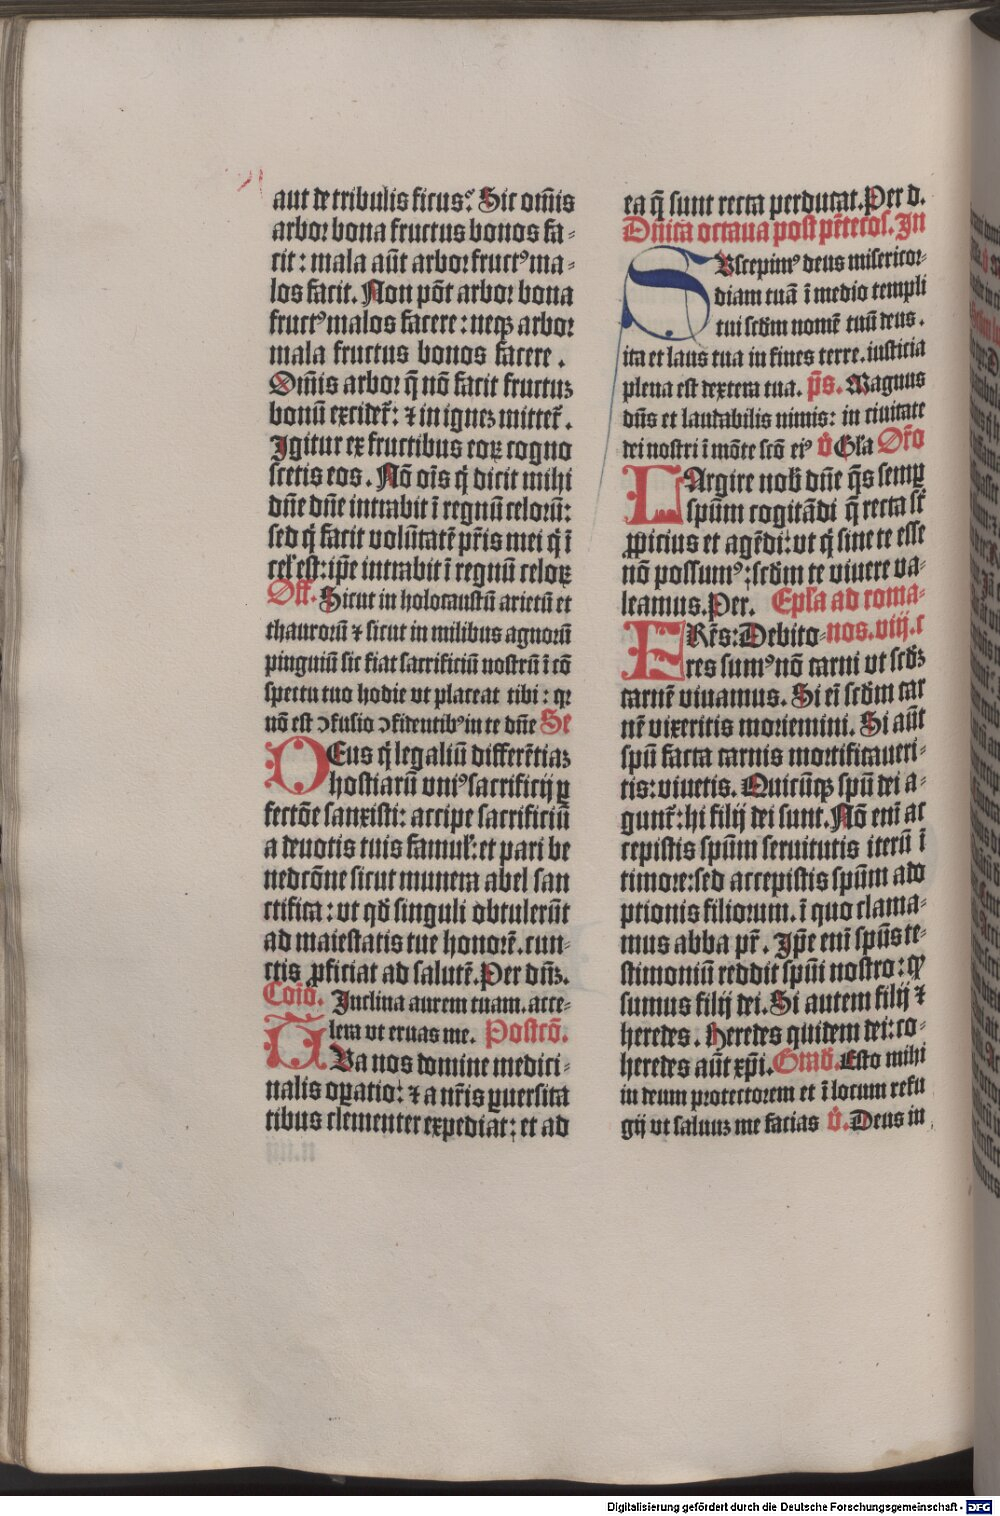 aut de tribulis ficus? Sic om̄is
arbor bona fructus bonos fa-
cit: mala aūt arbor fructꝰ ma-
los facit. Non pōt arbor bona
fructꝰ malos facere: neqꝫ arbor
mala fructus bonos facere.
Om̄is arbor q̄ nō facit fructuꝫ
bonū excidet̄: ⁊ in igneꝫ mittet̄.
Igitur ex fructibus eoꝝ cogno
scetis eos. Nō oīs q̇ dicit mihi
dn̄e dn̄e intrabit ī regnū celorū:
sed q̇ facit volūtatē pr̄is mei q̇ ī
cel̕ est: ip̄e intrabit ī regnū celoꝝ
Off. Sicut in holocaustū arietū et
thaurorū ⁊ sicut in milibus agnorū
pinguiū sic fiat sacrificiū nostrū ī cō
spectu tuo hodie vt placeat tibi: qꝛ
nō est ↄfusio ↄfidentibꝰ in te dn̄e Se
DEus q̇ legaliū differētiaꝫ
hostiarū vniꝰ sacrificij ꝑ
fectōe sanxisti: accipe sacrificiū
a deuotis tuis famul̕: et pari be
nedcōne sicut munera abel san
ctifica: vt qd̕ singuli obtulerūt
ad maiestatis tue honorē. cun-
ctis ꝓficiat ad salutē. Per dn̄ꝫ.
Coīō. Inclina aurem tuam. acce-
lera vt eruas me. Postcō.
TUa nos domine medici-
nalis oꝑatio: ⁊ a nr̄is ꝑuersita
tibus clementer expediat: et ad
ea q̄ sunt recta perducat. Per d.
Dn̄ica octaua post pētecos. In
SUscepimꝰ deus misericor-
diam tuā ī medio templi
tui scd̕m nomē tuū deus.
ita et laus tua in fines terre. iusticia
plena est dextera tua. p̄s. Magnus
dn̄s et laudabilis nimis: in ciuitate
dei nostri ī mōte scō eiꝰ V̕ Gl̕a Or̄o
LArgire nob̕ dn̄e q̄s semꝑ
spūm cogitādi q̄ recta st̄
ꝓpicius et agēdi: vt q̇ sine te esse
nō possumꝰ: scd̕m te viuere va-
leamus. Per. Epl̕a ad roma-
FRēs: Debito- nos. viij. c
res sumꝰ nō carni vt scd̕ꝫ
carnē viuamus. Si eī scd̕m car
nē vixeritis moriemini. Si aūt
spū facta carnis mortificaueri-
tis: viuetis. Quicūqꝫ spū dei a-
gunt̄: hi filij dei sunt. Nō enī ac
cepistis spūm seruitutis iterū ī
timore: sed accepistis spūm ado
ptionis filiorum. ī quo clama-
mus abba pr̄. Ip̄e enī spūs te-
stimoniū reddit spūi nostro: qꝫ
sumus filij dei. Si autem filij ⁊
heredes. Heredes quidem dei: co-
heredes aūt xp̄i. Grad̕. Esto mihi
in deum protectorem et ī locum refu
gij vt saluuꝫ me facias V̕. Deus in
Digitalisierung gefördert durch die Deutsche Forschungsgemeinschaft - DFG